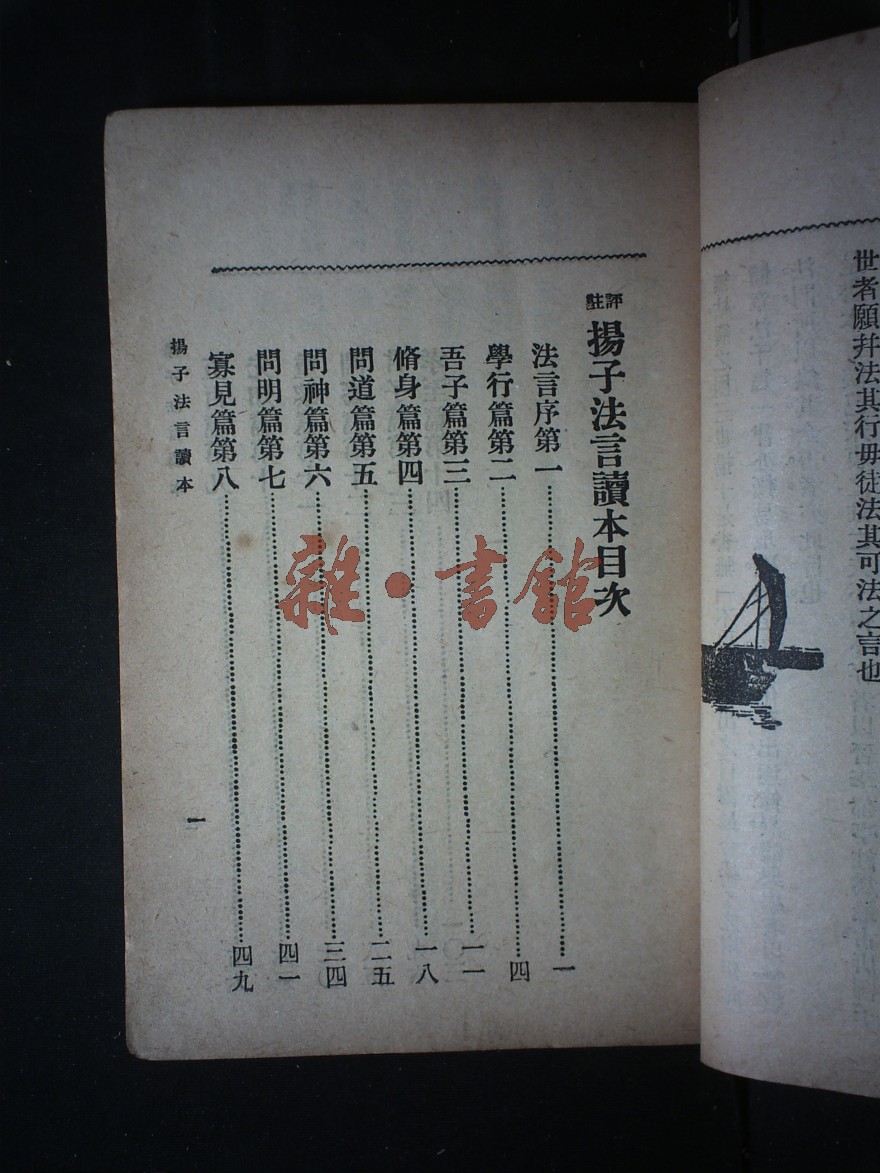 世者願幷法其行毋徒法其可法之言也
評註揚子法言讀本目次
法言序第一……一
學行篇第二……四
吾子篇第三……一一
脩身篇第四……一八
問道篇第五……二五
問神篇第六……三四
問明篇第七……四一
寡見篇第八……四九
揚子法言讀本
一
雜·書館